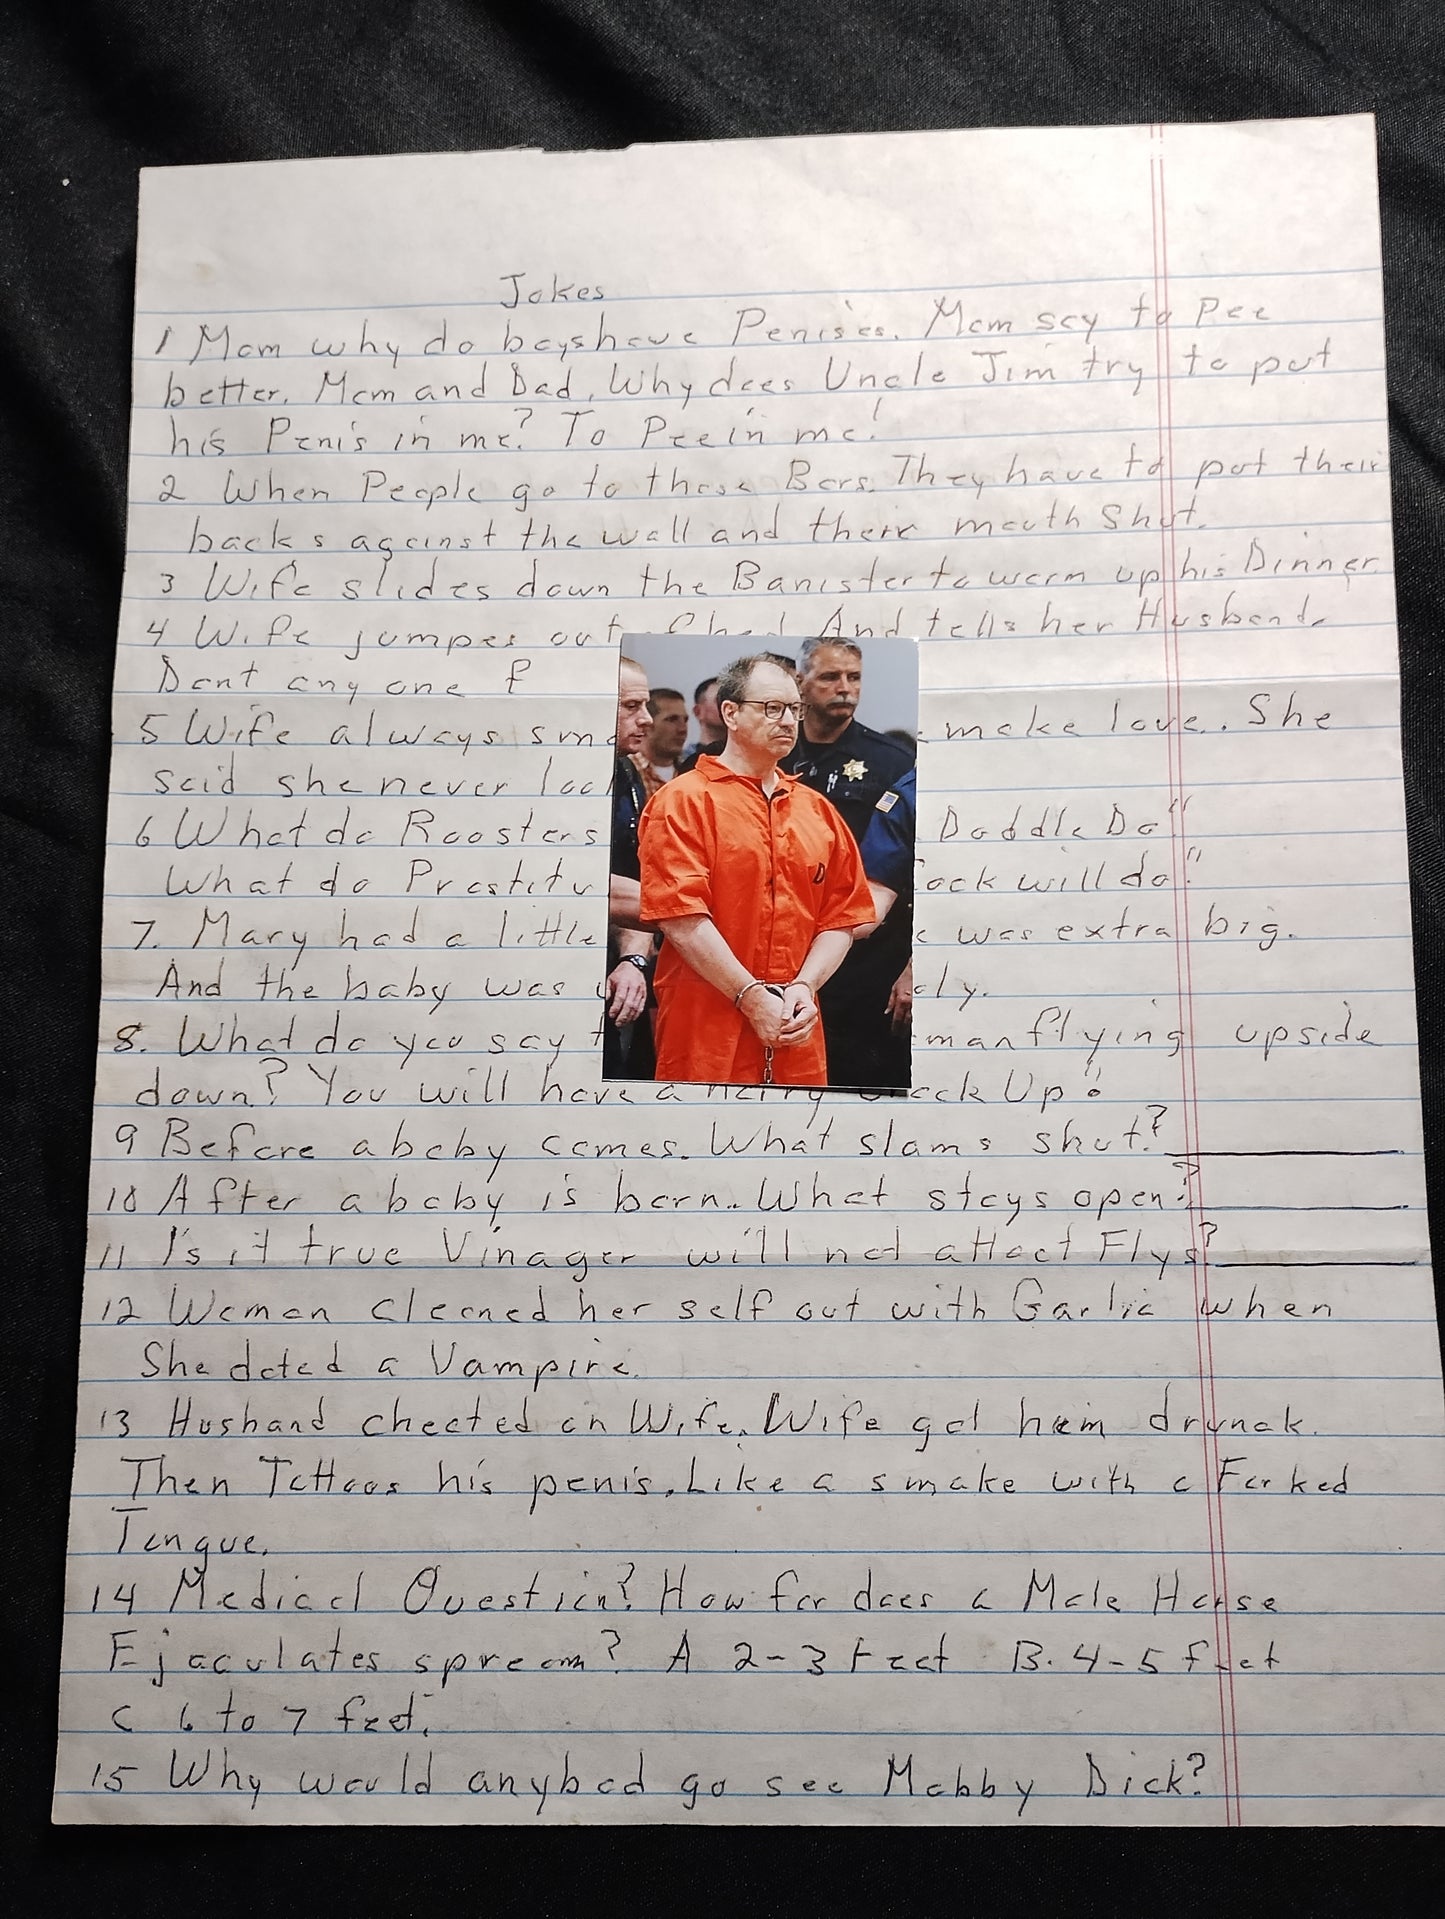 Jokes
1 Mom why do boys have Penises. Mom say to Pee
better. Mom and Dad, Why does Uncle Jim try to put
his Penis in me? To Pee in me!
2 When People go to those Bars. They have to put their
backs against the wall and there mouth Shut.
3 Wife slides down the Banister to warm up his Dinner.
4 Wife jumpes out of bed And tells her Husband.
Dont any one f
5 Wife always make love. She
said she never
6 What do Roosters Doddle Do"
What do Cock will do"
7. Mary had a little was extra big.
And the baby was
8. What do you say man flying upside
down? You will have a Up!
9 Before a baby comes. What slams shut?
10 After a baby is born.. What stays open?
11 Is it true Vinager will not attact Flys?
12 Woman cleaned her self out with Garlic when
She dated a Vampire.
13 Husband cheated on Wife. Wife got him drunak.
Then Tattoos his penis. Like a smake with a Forked
Tongue.
14 Medical Question? How far does a Male Horse
Ejaculates ? A 2-3 Feet B. 4-5 feet
C 6 to 7 feet.
15 Why would anybod go see Mobby Dick?